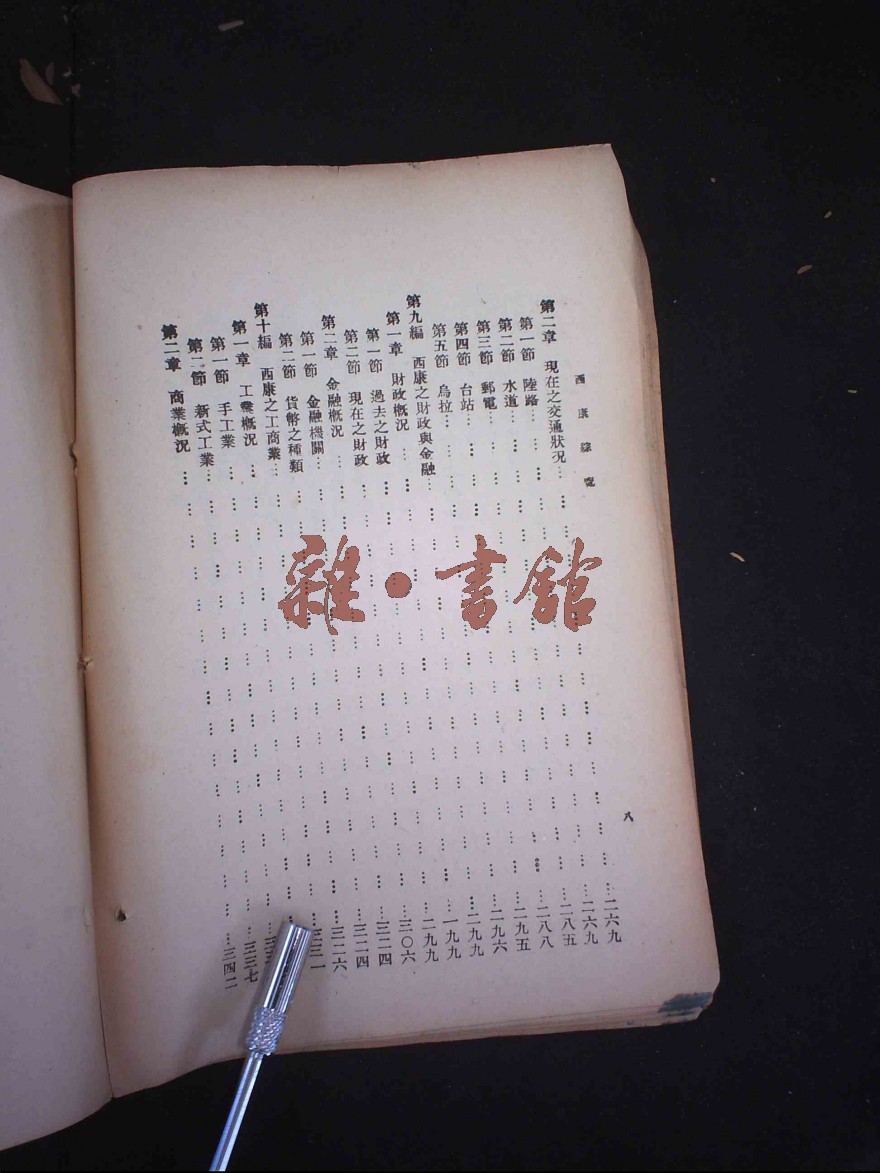 西康綜覽
八
第二章 現在之交通狀況……二六九
第一節 陸路……二六九
第二節 水道……二八五
第三節 郵電……二八八
第四節 台站……二九五
第五節 烏拉……二九六
第九編 西康之財政與金融……二九九
第一章 財政概況……一九九
第一節 過去之財政……二九九
第二節 現在之財政……三〇六
第二章 金融概況……三二四
第一節 金融機關……三二四
第二節 貨幣之種類……三二六
第十編 西康之工商業……三三一
第一章 工業概況……
第一節 手工業……三三
第二節 新式工業……三三七
第二章 商業概況……三四二
雜·書館